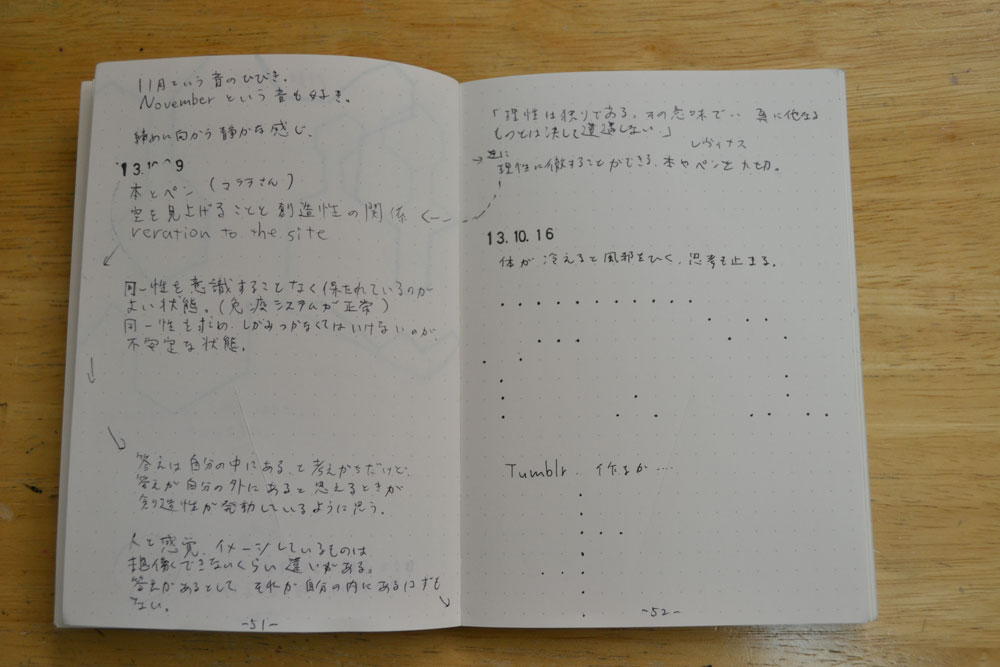 11月という音のひびき。
Novemberという音も好き。
締めに向かう静かな感じ。
13.10 9
本とペン (コラヲさん)
空を見上げることと創造性の関係
reration to the site
同一性を意識することなく保たれているのが
よい状態。(免疫システムが正常)
同一性を求め、しがみつかなくてはいけないのが、
不安定な状態。
答えは自分の中にある、と考えがちだけど、
答えが自分の外にあると思えるときが
創造性が発動しているように思う。
人と感覚、イメージしているものは
想像できないくらい違いがある。
答えがあるとして、それが自分の内にあるはずも
ない。
-51-
「理性は独りである。その意味で‥ 真に他なる
ものとは決して遭遇しない。」
レヴィナス
逆に
理性に徹することができる、本やペンは大切。
13.10.16
体が冷えると風邪をひく、思考も止まる。
Tumblr. 作るか....
-52-